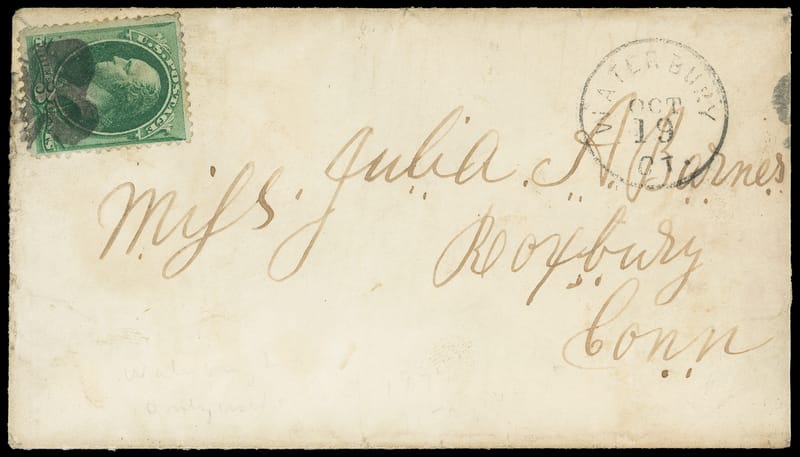 U.S. POSTAGE
WATERBURY
OCT
19
CT.
Miss. Julia. A. Barnes
Roxbury
Conn